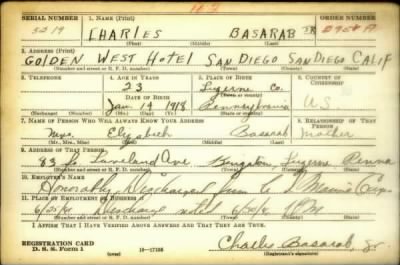 182
SERIAL NUMBER 1. NAME (Print) ORDER NUMBER
5219 CHARLES BASARAB JR
(First) (Middle) (Last)
2. ADDRESS (Print)
GOLDEN WEST HOTEL SAN DIEGO SAN DIEGO CALIF
(Number and street or R. F. D. number) (Town) (County) (State)
3. TELEPHONE 4. AGE IN YEARS 5. PLACE OF BIRTH 6. COUNTRY OF CITIZENSHIP
23 Luzerne Co.
DATE OF BIRTH (Town or county)
Jan. 19 1918 Pennsylvania U S
(Mo.) (Day) (Yr.) (State or country)
7. NAME OF PERSON WHO WILL ALWAYS KNOW YOUR ADDRESS 8. RELATIONSHIP OF THAT PERSON
Mrs. Elizabeth Basarab Mother
(Mr., Mrs., Miss) (First) (Middle) (Last)
9. ADDRESS OF THAT PERSON
83 Loveland Ave. Luzerne Penna
(Number and street or R. F. D. number) (Town) (County) (State)
10. EMPLOYER'S NAME
Honorably Discharged from Marine Corps
11. PLACE OF EMPLOYMENT OR BUSINESS
Discharge noted
(Number and street or R. F. D. number) (Town) (County) (State)
I AFFIRM THAT I HAVE VERIFIED ABOVE ANSWERS AND THAT THEY ARE TRUE.
REGISTRATION CARD
D. S. S. Form 1 16—17105 Charles Basarab, Jr.
(Registrant's signature)